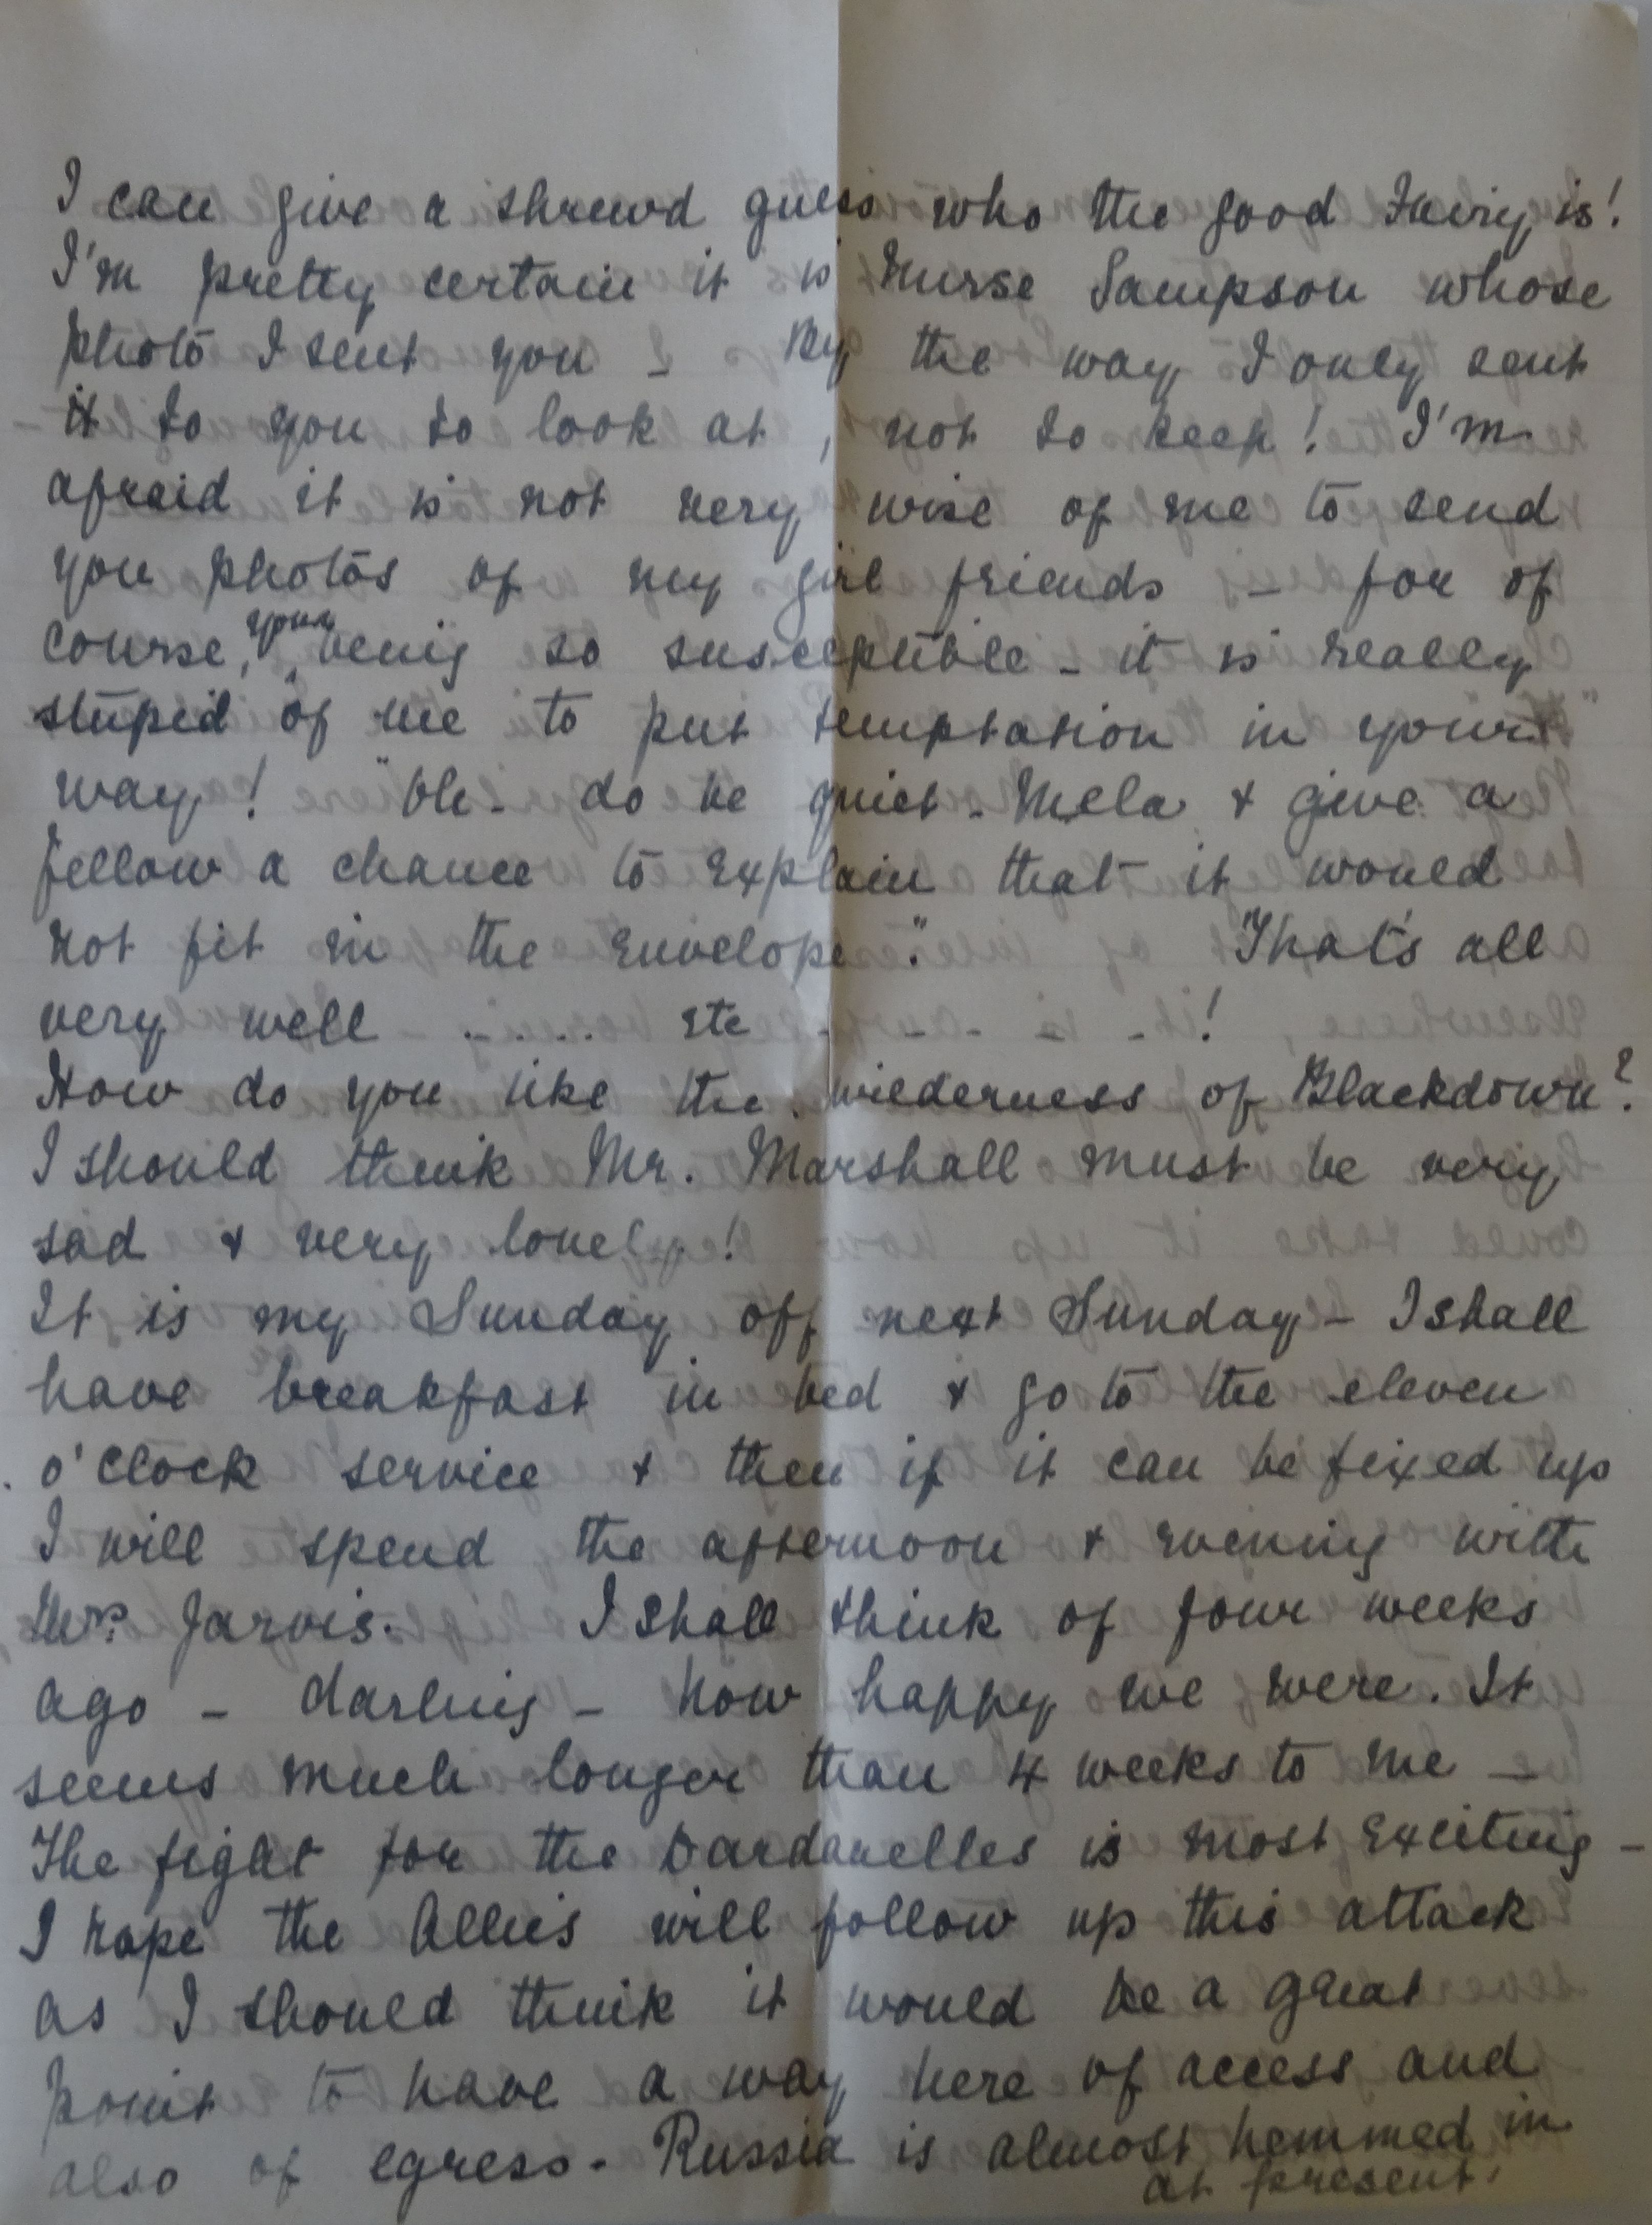 I can give a shrewd guess who the good Fairy is!
I'm pretty certain it is Nurse Sampson whose
photo I sent you – By the way I only sent
it to you to look at, not to keep! I'm
afraid it is not very wise of me to send
you photos of my girl friends – for of
course, your being so susceptible – it is really
stupid of me to put temptation in your
way! "Oh – do be quiet – Mela & give a
fellow a chance to explain that it would
not fit in the envelope". "That's all
very well ..... etc - - - - - !
How do you like the wilderness of Blackdown?
I should think Mr. Marshall must be very
sad & very lonely!
It is my Sunday off next Sunday – I shall
have breakfast in bed & go to the eleven
o'clock service & then if it can be fixed up
I will spend the afternoon & evening with
Mrs. Jarvis. I shall think of four weeks
ago – darling – how happy we were. It
seems much longer than 4 weeks to me –
The fight for the Dardanelles is most exciting –
I hope the Allies will follow up this attack
as I should think it would be a great
point to have a way here of access and
also of egress – Russia is almost hemmed in
at present.